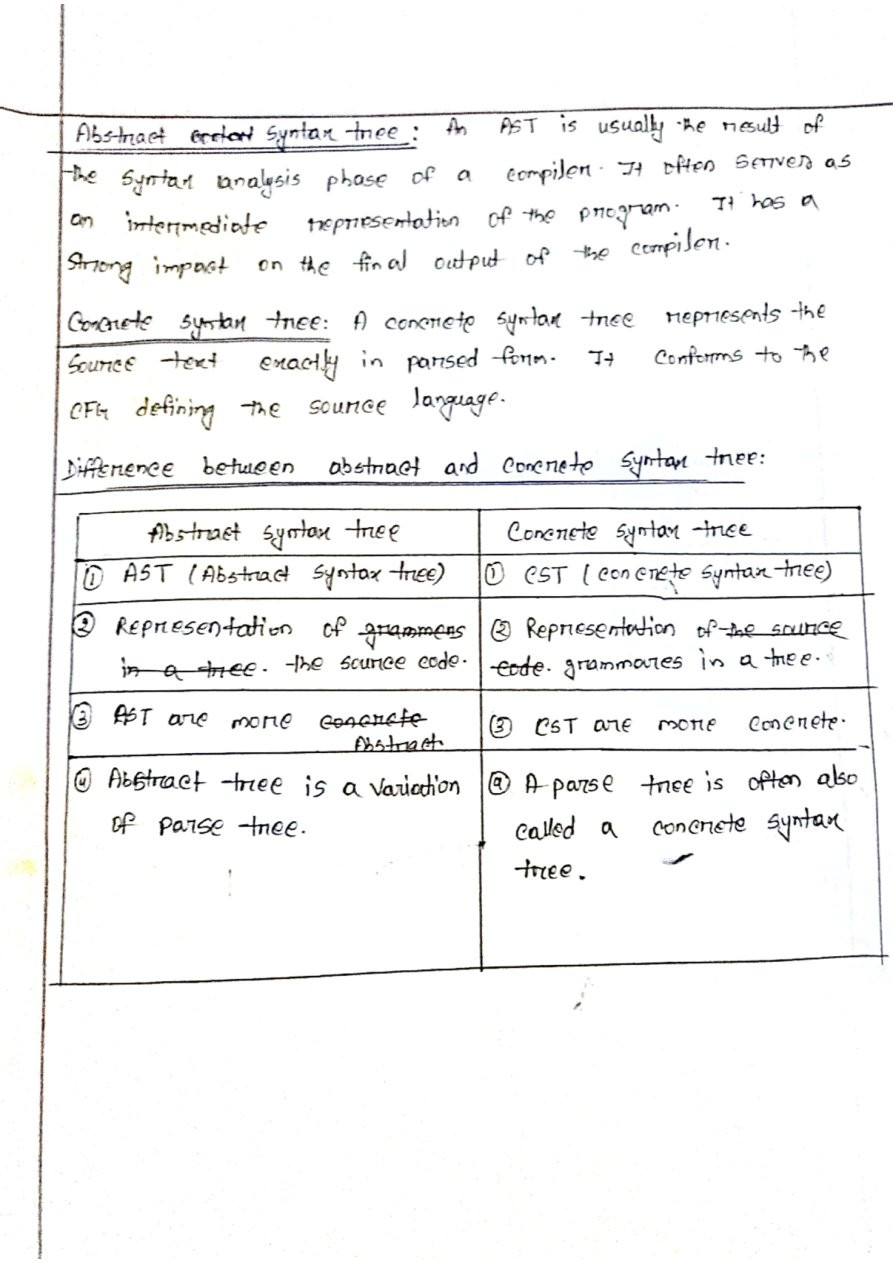 Abstract syntax tree: An AST is usually the result of
the syntax analysis phase of a compiler. It often serves as
an intermediate representation of the program. It has a
strong impact on the final output of the compiler.
Concrete syntax tree: A concrete syntax tree represents the
source text exactly in parsed form. It conforms to the
CFG defining the source language.
Difference between abstract and concrete syntax tree:
Abstract syntax tree
Concrete syntax tree
① AST (Abstract syntax tree)
① CST (concrete syntax tree)
② Representation of grammers
in a tree. the source code.
② Representation of the source
code. grammares in a tree.
③ AST are more concrete
Abstract
③ CST are more concrete.
④ Abstract tree is a variation
of parse tree.
④ A parse tree is often also
called a concrete syntax
tree.